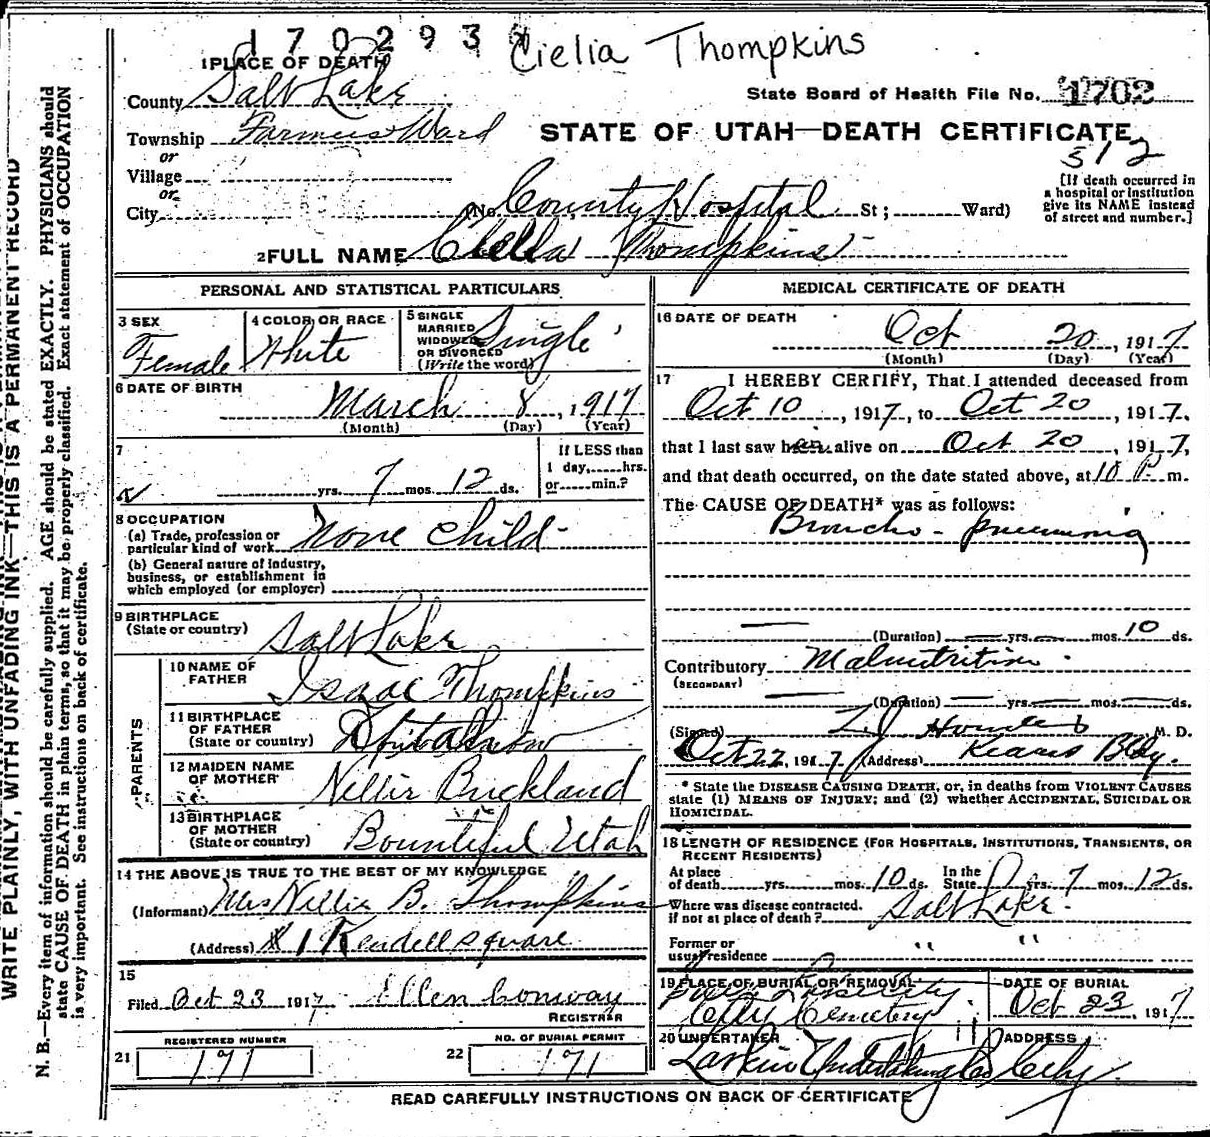 170293
Cielia Thompkins
1 PLACE OF DEATH
County Salt Lake
State Board of Health File No. 1702
Township Farmers Ward
STATE OF UTAH—DEATH CERTIFICATE
512
or
Village
or
City (No. County Hospital St; Ward)
[If death occurred in a hospital or institution give its NAME instead of street and number.]
2 FULL NAME Clella Thompkins
PERSONAL AND STATISTICAL PARTICULARS
3 SEX Female
4 COLOR OR RACE White
5 SINGLE MARRIED WIDOWED OR DIVORCED (Write the word) Single
6 DATE OF BIRTH March 8, 1917
(Month) (Day) (Year)
7 yrs. 7 mos. 12 ds.
If LESS than 1 day, hrs. or min.?
8 OCCUPATION
(a) Trade, profession or particular kind of work None Child
(b) General nature of industry, business, or establishment in which employed (or employer)
9 BIRTHPLACE (State or country) Salt Lake
PARENTS
10 NAME OF FATHER Isaac Thompkins
11 BIRTHPLACE OF FATHER (State or country)
12 MAIDEN NAME OF MOTHER Nellie Buckland
13 BIRTHPLACE OF MOTHER (State or country) Bountiful Utah
14 THE ABOVE IS TRUE TO THE BEST OF MY KNOWLEDGE
(Informant) Mrs Nellie B. Thompkins
(Address) # 1 Kendell square
15
Filed Oct 23 1917 Ellen Conway
REGISTRAR
21 REGISTERED NUMBER 171
22 NO. OF BURIAL PERMIT 171
MEDICAL CERTIFICATE OF DEATH
16 DATE OF DEATH Oct 20, 1917
(Month) (Day) (Year)
17 I HEREBY CERTIFY, That I attended deceased from
Oct 10, 1917, to Oct 20, 1917,
that I last saw her alive on Oct 20, 1917,
and that death occurred, on the date stated above, at 10 P m.
The CAUSE OF DEATH* was as follows:
Broncho-pneumonia
(Duration) yrs. mos. 10 ds.
Contributory Malnutrition
(SECONDARY)
(Duration) yrs. mos. ds.
(Signed) M. D.
Oct 22, 1917 (Address) Kearns Bldg.
* State the DISEASE CAUSING DEATH, or, in deaths from VIOLENT CAUSES
state (1) MEANS OF INJURY; and (2) whether ACCIDENTAL, SUICIDAL OR
HOMICIDAL.
18 LENGTH OF RESIDENCE (FOR HOSPITALS, INSTITUTIONS, TRANSIENTS, OR
RECENT RESIDENTS)
At place of death yrs. mos. 10 ds. In the State 0 yrs. 7 mos. 12 ds.
Where was disease contracted, if not at place of death? Salt Lake
Former or usual residence " "
19 PLACE OF BURIAL OR REMOVAL City Cemetery
DATE OF BURIAL Oct 23 1917
20 UNDERTAKER Larkin Undertaking Co
ADDRESS City
READ CAREFULLY INSTRUCTIONS ON BACK OF CERTIFICATE
WRITE PLAINLY, WITH UNFADING INK—THIS IS A PERMANENT RECORD
N. B.—Every item of information should be carefully supplied. AGE should be stated EXACTLY. PHYSICIANS should
state CAUSE OF DEATH in plain terms, so that it may be properly classified. Exact statement of OCCUPATION
is very important. See instructions on back of certificate.